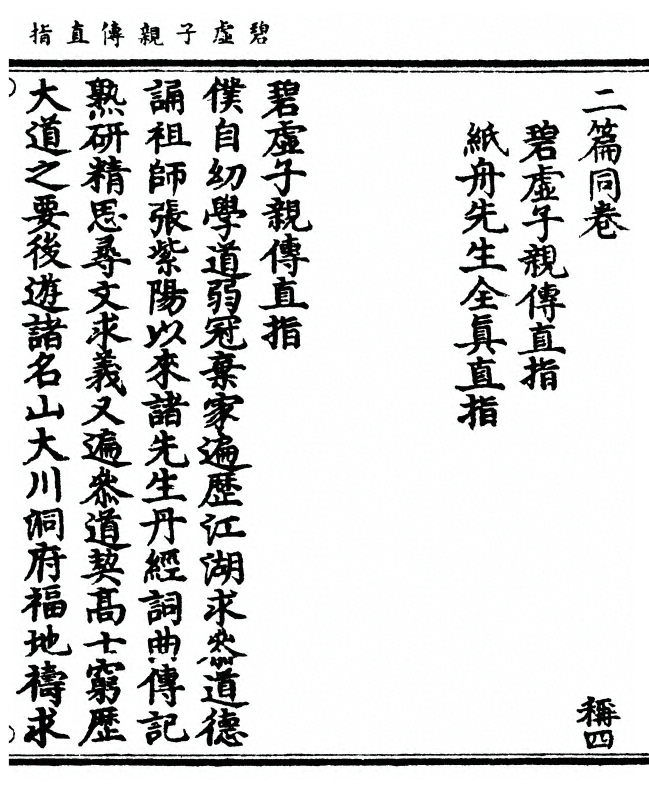 碧虛子親傳直指
二篇同卷
稱四
碧虛子親傳直指
紙舟先生全眞直指
碧虛子親傳直指
僕自幼學道弱冠棄家遍歷江湖求叅道德
誦祖師張紫陽以來諸先生丹經詞曲傳記
熟研精思尋文求義又遍叅道契高士窮歷
大道之要後遊諸名山大川洞府福地禱求